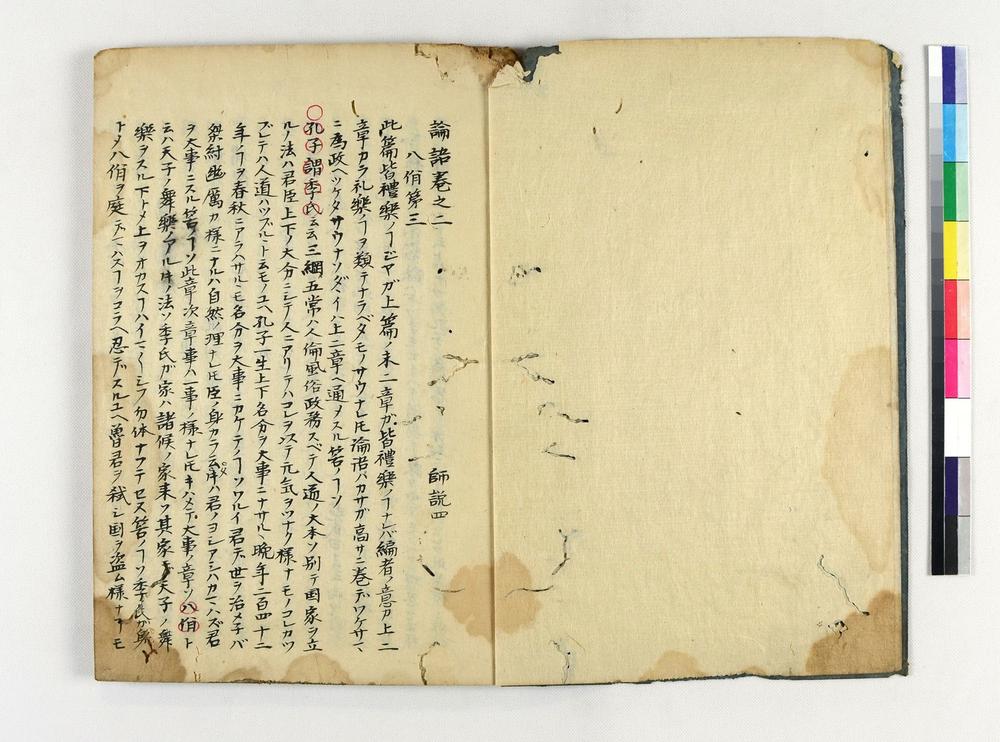 論語巻之二 師説四
八佾第三
此篇皆禮樂ノヿジヤガ上篇ノ末二章ガ皆禮樂ノヿナレバ編者ノ意カ上二
章カラ礼樂ノヿヲ類テナラベタモノサウナレ𪜈論語バカサガ高サニ巻デワケサマ
ニ為政ヘツケタサウナソダイハ上二章ヘ通メスル筈ノヿソ
孔子謂季氏云云三綱五常ハ人倫風俗政務スベテ人道ノ大本ソ別テ国家ヲ立
ルノ法ハ君臣上下ノ大分ニシテ人ニアリテハコレヲステ元気ヲツナク様ナモノコレカツ
ブレテハ人道ハツブルヽト云モノユヘ孔子一生上下名分ヲ大事ニナサル晩年二百四十二
年ノヿヲ春秋ニアラハサルヽモ名分ヲ大事ニカケテノヿソワルイ君デ世ヲ治メ子バ
桀紂幽厲カ様ニナルハ自然ノ理ナレ𪜈臣ノ身カラ云ハ君ノヨシアシハカマハズ君
ヲ大事ニスル筈ノヿソ此章次章事ハ一事ノ様ナレ𪜈キハメテ大事ノ章ソ八佾ト
云ハ天子ノ舞樂ノアルノ法ソ季氏ガ家ハ諸候ノ家来ソ其家デ天子ノ舞
樂ヲスル下トメ上ヲオカスヿハイマ勿体ナフテセヌ筈ノヿソ季氏ガ
トメ八佾ヲ庭デマハスヿヲコラヘ忍デスルユヘ魯君ヲ弑シ国ヲ盗ム様ナヿモ